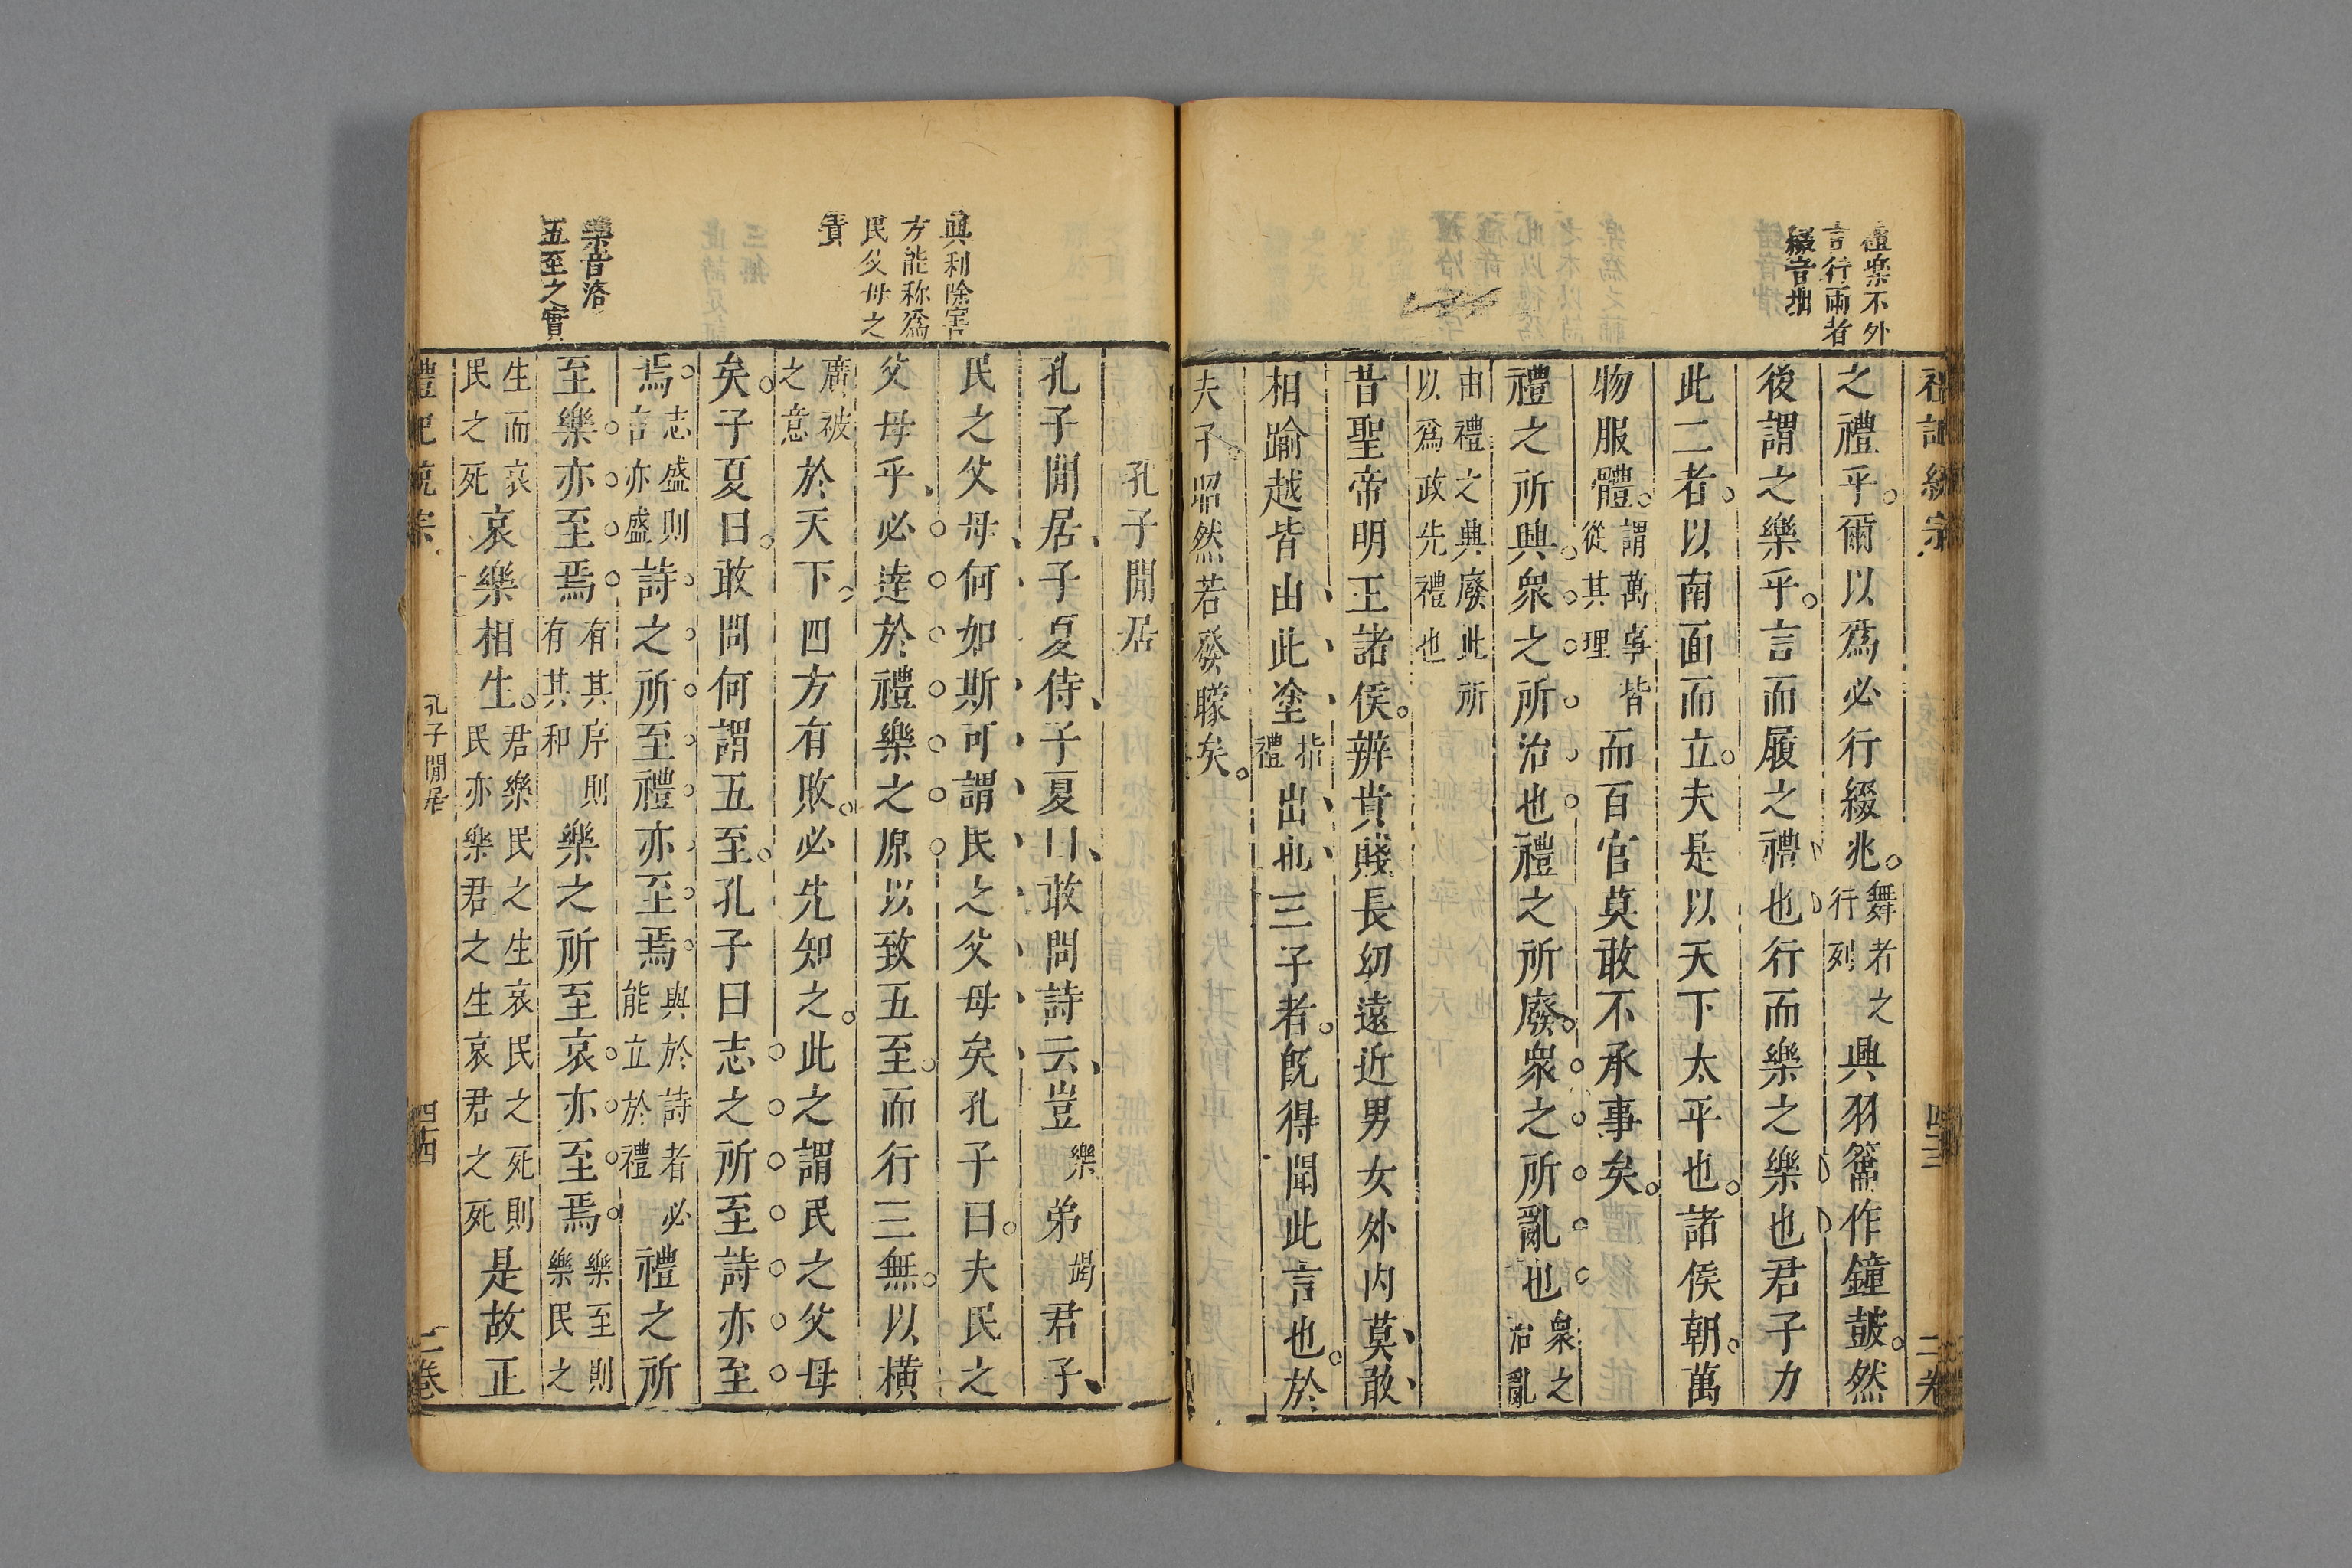 禮樂不外
言行兩者
綴音拙
之禮乎爾以爲必行綴兆舞者之行列興羽籥作鐘鼓然
後謂之樂乎言而履之禮也行而樂之樂也君子力
此二者以南面而立夫是以天下太平也諸侯朝萬
物服體謂萬事皆從其理而百官莫敢不承事矣
禮之所興衆之所治也禮之所廢衆之所亂也衆之治亂
由禮之興廢此所以爲政先禮也
昔聖帝明王諸侯辨貴賤長幼遠近男女外内莫敢
相踰越皆由此塗指禮出也三子者旣得聞此言也於
夫子昭然若發矇矣
興利除害
方能称爲
民父母之
責
樂音洛
五至之實
孔子閒居
孔子閒居子夏侍子夏曰敢問詩云豈樂弟君子
民之父母何如斯可謂民之父母矣孔子曰夫民之
父母乎必達於禮樂之原以致五至而行三無以横
廣被之意於天下四方有敗必先知之此之謂民之父母
矣子夏曰敢問何謂五至孔子曰志之所至詩亦至
焉志盛則言亦盛詩之所至禮亦至焉興於詩者必能立於禮禮之所
至樂亦至焉有其序則有其和樂之所至哀亦至焉樂至則樂民之
生而哀民之死哀樂相生君樂民之生哀民之死則民亦樂君之生哀君之死是故正
孔子閒居
二卷